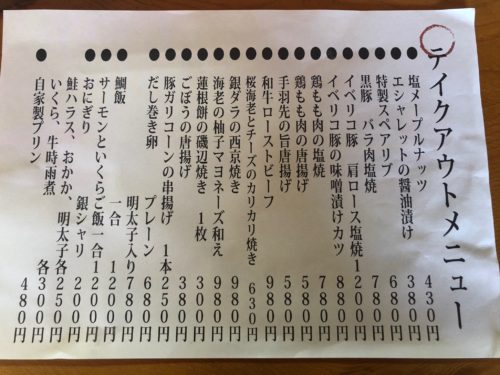 テイクアウトメニュー
塩メープルナッツ 430円
エシャレットの醤油漬け 380円
特製スペアリブ 680円
黒豚 バラ肉塩焼 780円
イベリコ豚 肩ロース塩焼 1200円
イベリコ豚の味噌漬けカツ
鶏もも肉の塩焼 780円
鶏もも肉の唐揚げ
手羽先の旨唐揚げ 580円
和牛ローストビーフ 980円
桜海老とチーズのカリカリ焼き 630円
銀ダラの西京焼き 980円
海老の柚子マヨネーズ和え 980円
蓮根餅の磯辺焼き 1枚 300円
ごぼうの唐揚げ 380円
豚ガリコーンの串揚げ 1本 250円
だし巻き卵 プレーン 680円
明太子入り 780円
鯛飯 一合 1200円
サーモンといくらご飯一合 1200円
おにぎり 銀シャリ 200円
鮭ハラス、おかか、明太子各 250円
いくら、牛時雨煮 各300円
自家製プリン 480円